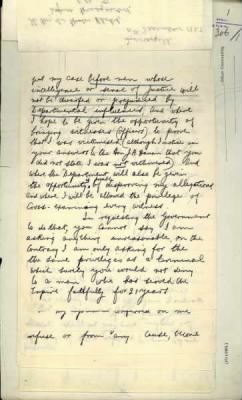 put my case before men whose
intelligence or sense of justice will
not be dwarfed or prejudiced by
Departmental influences, and where
I hope to be given the opportunity of
bringing witnesses (officers) to prove
that I was victimised (although I notice in
your answer to the Hon J.A. that you
did not state I was not victimised). And
where the Department will also be given
the opportunity of disproving my allegations
and where I will be allowed the privilege of
Cross-examining every witness
In requesting the Government
to do that, you cannot say I am
asking anything unreasonable on the
contrary I am only asking for the
the same privileges as a Criminal
which surely you would not deny
to a man who has served the
Empire faithfully for 21 years
my on me
refuse or from any cause, become